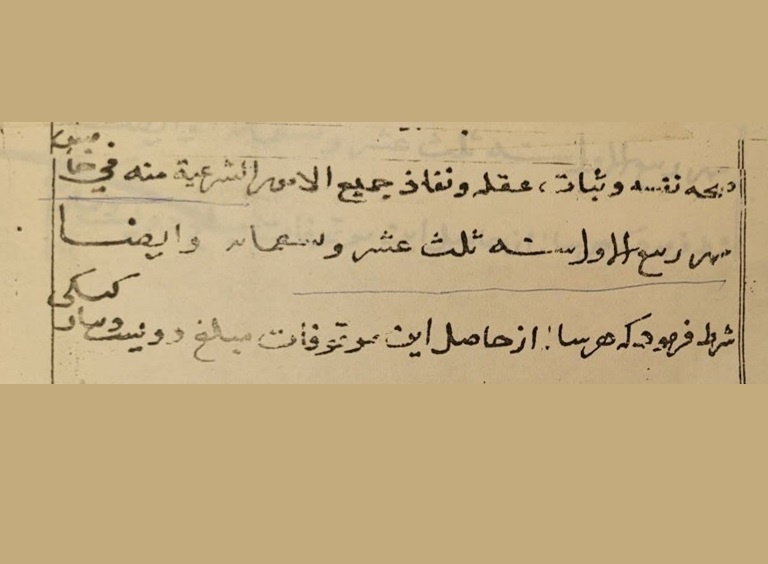 صحه نفسه وثبات عقله ونفاذ جميع الامور الشرعية منه في خامس
شهر ربيع الاول سنه ثلث عشر وتسعمائه وايضا
شرط فرمود که هر سال از حاصل این موقوفات مبلغ دویست دینار کپکی